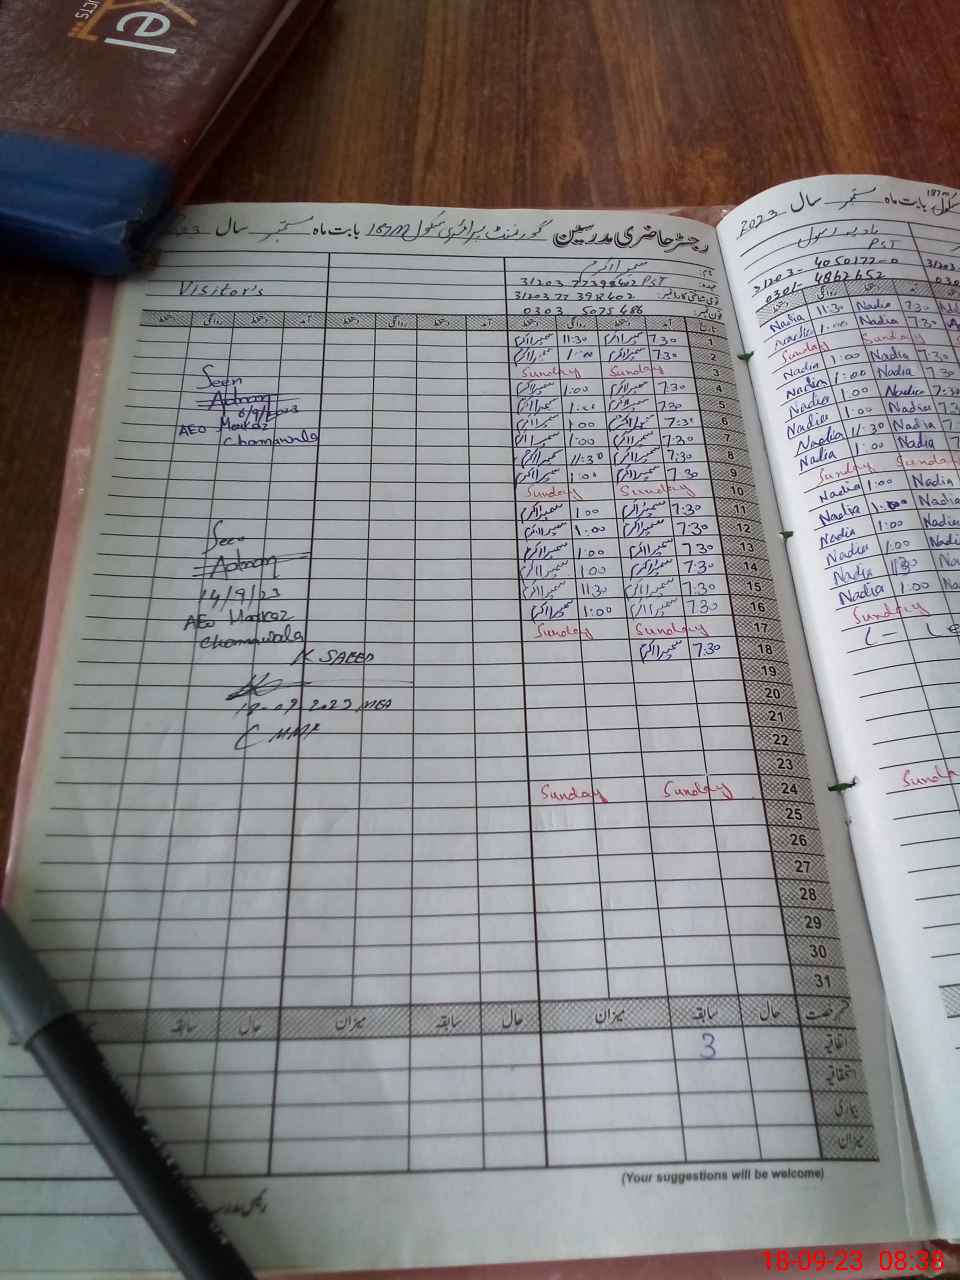 el
رجسٹر حاضری مدرسین گورنمنٹ پرائمری سکول 187m بابت ماہ ستمبر سال
نام: سمیرا اکرم
عہدہ: 31203 77398402 PST
قومی شناختی کارڈ نمبر: 31203 77 398402
فون نمبر: 0303 5075486
Visitor's
تاریخ آمد دستخط روانگی دستخط آمد دستخط روانگی دستخط آمد دستخط روانگی دستخط
1 7.30 سمیرا اکرم 11:30 سمیرا اکرم
2 7.30 سمیرا اکرم 1:00 سمیرا اکرم
3 Sunday Sunday
4 7.30 سمیرا اکرم 1:00 سمیرا اکرم
5 7.30 سمیرا اکرم 1:00 سمیرا اکرم
6 7:30 سمیرا اکرم 1:00 سمیرا اکرم
7 7:30 سمیرا اکرم 1:00 سمیرا اکرم
8 7:30 سمیرا اکرم 11:30 سمیرا اکرم
9 7.30 سمیرا اکرم 1:00 سمیرا اکرم
10 Sunday Sunday
11 7:30 سمیرا اکرم 1:00 سمیرا اکرم
12 7:30 سمیرا اکرم 1:00 سمیرا اکرم
13 7:30 سمیرا اکرم 1:00 سمیرا اکرم
14 7:30 سمیرا اکرم 1:00 سمیرا اکرم
15 7:30 سمیرا اکرم 11:30 سمیرا اکرم
16 7:30 سمیرا اکرم 1:00 سمیرا اکرم
17 Sunday Sunday
18 7:30 سمیرا اکرم
19
20
21
22
23
24 Sunday Sunday
25
26
27
28
29
30
31
Seen
Adnan
6/9/2023
AEO Markaz
Chamawala
Seen
Adnan
14/9/23
AEO Markaz
Chamawala
K SAEED
18-09-2023 MEA
قسم رخصت حال سابقہ میزان حال سابقہ میزان حال سابقہ
اتفاقیہ 3
استحقاقیہ
بیماری
میزان
(Your suggestions will be welcome)
سکول 187m بابت ماہ ستمبر سال 2023
نادیہ رسول
PST
31203- 4050177-0
0301- 4862652
روانگی
7:30 Nadia 11:30 Nadia
7:30 Nadia 1:00 Nadia
Sunday Sunday
7:30 Nadia 1:00 Nadia
7:30 Nadia 1:00 Nadia
7:30 Nadia 1:00 Nadia
Nadia 1:00 Nadia
Nadia 11:30 Nadia
Nadia 1:00 Nadia
Sunday Sunday
Nadia 1:00 Nadia
Nadia 1:00 Nadia
Nadia 1:00 Nadia
1:00 Nadia
11:30 Nadia
1:00 Nadia
Sunday
18-09-23 08:38